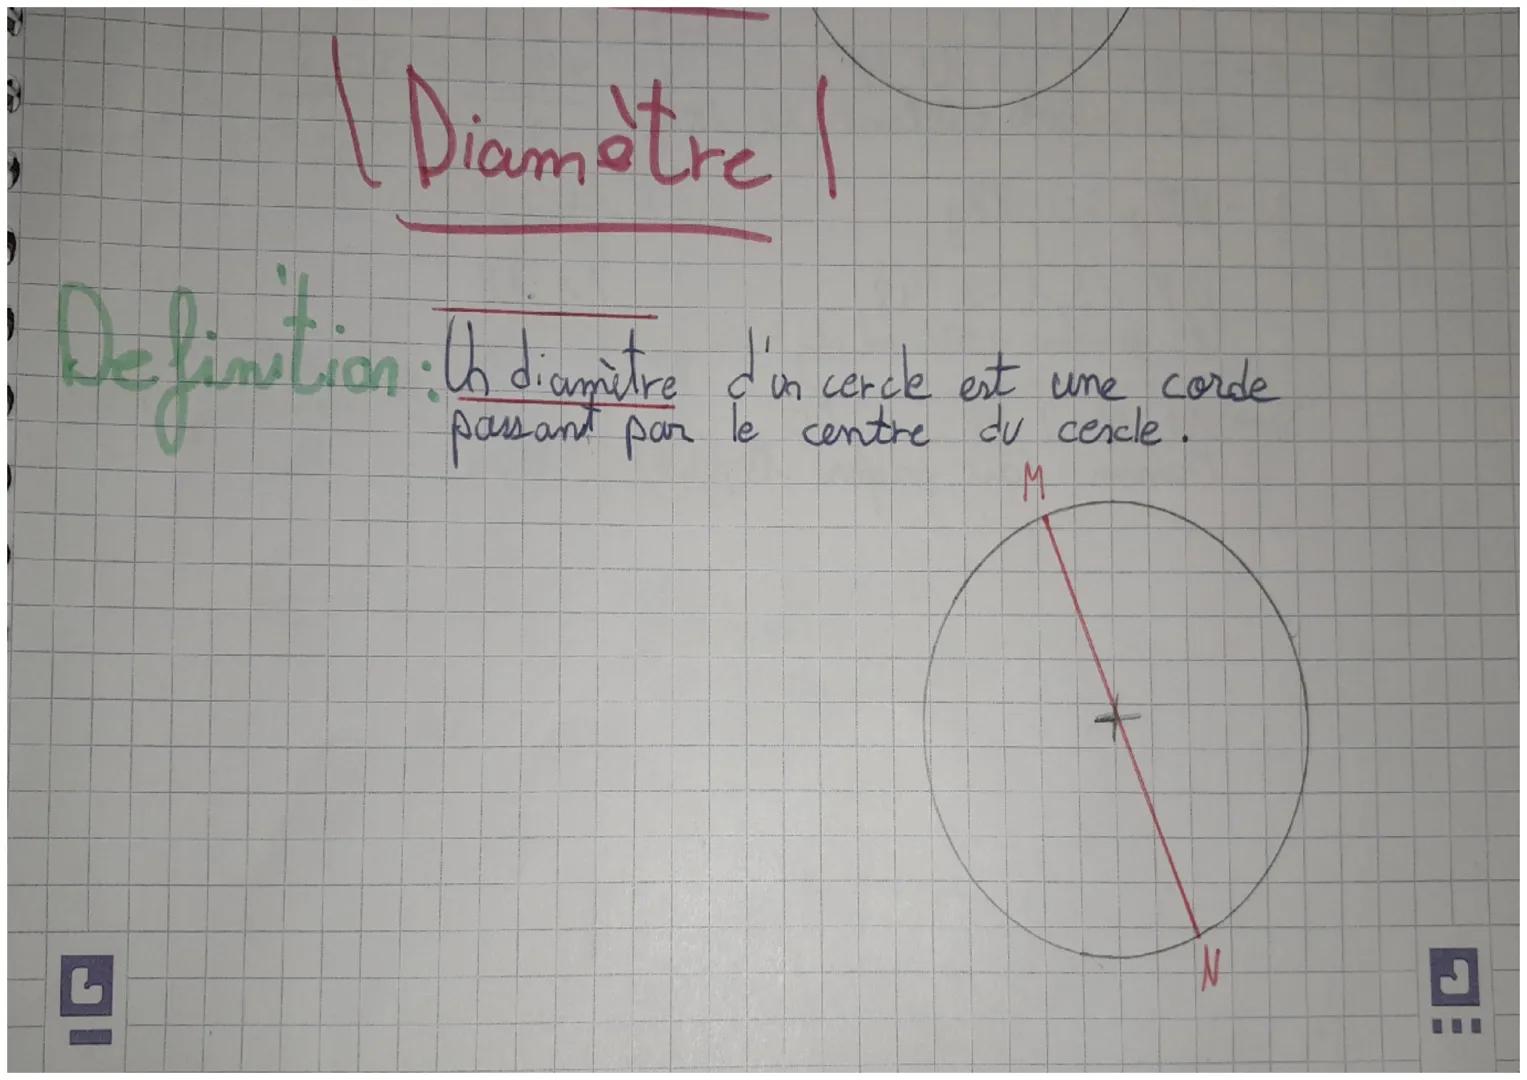 Diamètre
Definition : Un diamètre d'un cercle est une corde
passant par le centre du cercle.
M
N